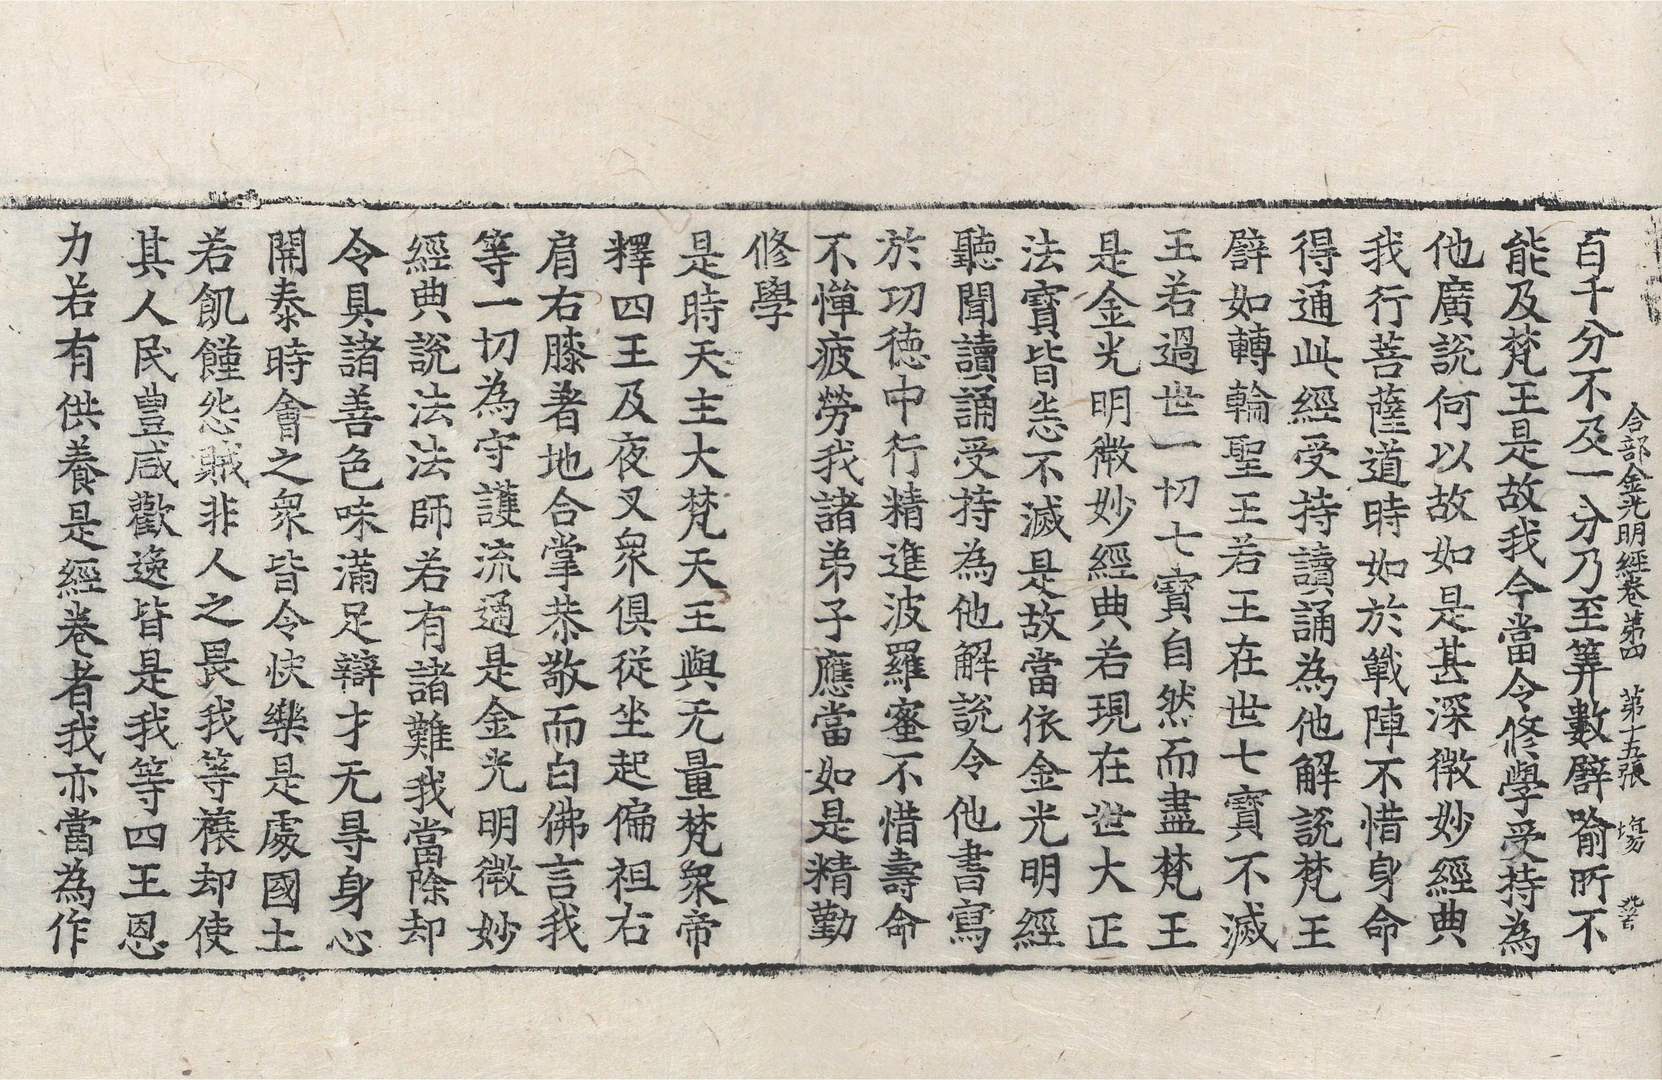 合部金光明經卷第四 第十五張 塲
百千分不及一分乃至筭數譬喻所不
能及梵王是故我今當令修學受持為
他廣說何以故如是甚深微妙經典
我行菩薩道時如於戰陣不惜身命
得通此經受持讀誦為他解說梵王
譬如轉輪聖王若王在世七寶不滅
王若過世一切七寶自然而盡梵王
是金光明微妙經典若現在世大正
法寶皆悉不滅是故當依金光明經
聽聞讀誦受持為他解說令他書寫
於功德中行精進波羅蜜不惜壽命
不憚疲勞我諸弟子應當如是精勤
修學
是時天主大梵天王與无量梵眾帝
釋四王及夜叉眾俱從坐起偏袒右
肩右膝著地合掌恭敬而白佛言我
等一切為守護流通是金光明微妙
經典說法法師若有諸難我當除却
令具諸善色味滿足辯才无㝵身心
開泰時會之眾皆令快樂是處國土
若飢饉怨賊非人之畏我等禳却使
其人民豊咸歡逸皆是我等四王恩
力若有供養是經卷者我亦當為作